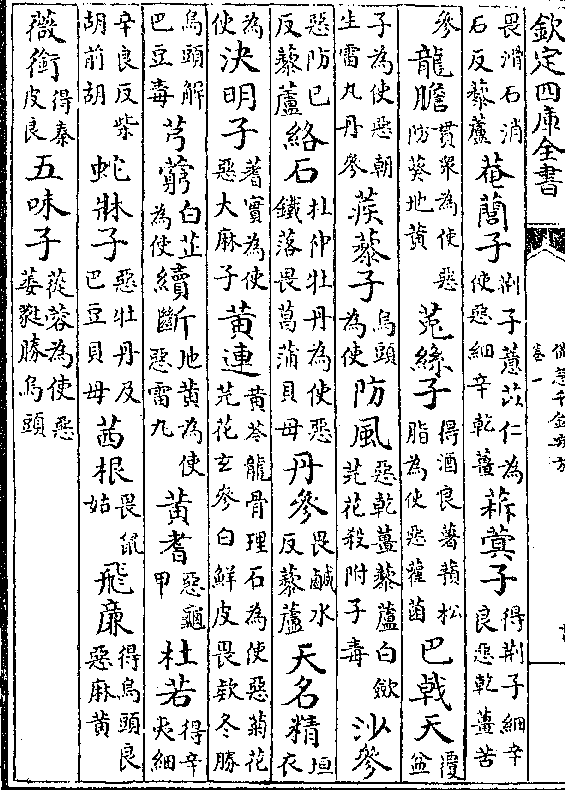 欽定四庫全書
備急千金要方
卷一
畏滑石消石反藜蘆 菴䕡子 荆子薏苡仁為使惡細辛乾薑 菥蓂子 得荆子細辛良惡乾薑苦
參 龍膽 貫衆為使惡防葵地黃 菟絲子 得酒良薯蕷松脂為使惡雚菌 巴戟天 覆盆
子為使惡朝生雷丸丹參 蒺藜子 烏頭為使 防風 惡乾薑藜蘆白歛芫花殺附子毒 沙參
惡防已反藜蘆 絡石 杜仲牡丹為使惡鐵落畏菖蒲貝母 丹參 畏鹹水反藜蘆 天名精 垣衣
為使 決明子 蓍實為使惡大麻子 黃連 黃芩龍骨理石為使惡菊花芫花玄參白鮮皮畏欵冬勝
烏頭解巴豆毒 芎藭 白芷為使 續斷 地黃為使惡雷丸 黃耆 惡龜甲 杜若 得辛夷細
辛良反柴胡前胡 蛇牀子 惡牡丹及巴豆貝母 茜根 畏鼠姑 飛廉 得烏頭良惡麻黃
薇銜 得秦皮良 五味子 蓯蓉為使惡萎蕤勝烏頭